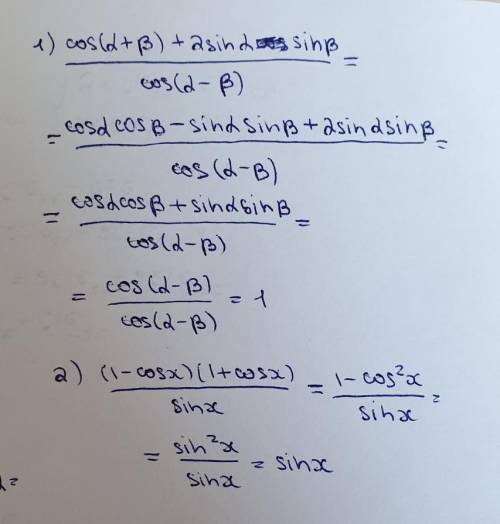 1) cos(α+β) + 2sinα sinβ / cos(α-β) =
= cosα cosβ - sinα sinβ + 2sinα sinβ / cos(α-β) =
= cosα cosβ + sinα sinβ / cos(α-β) =
= cos(α-β) / cos(α-β) = 1
2) (1-cosx)(1+cosx) / sinx = 1-cos²x / sinx =
= sin²x / sinx = sinx